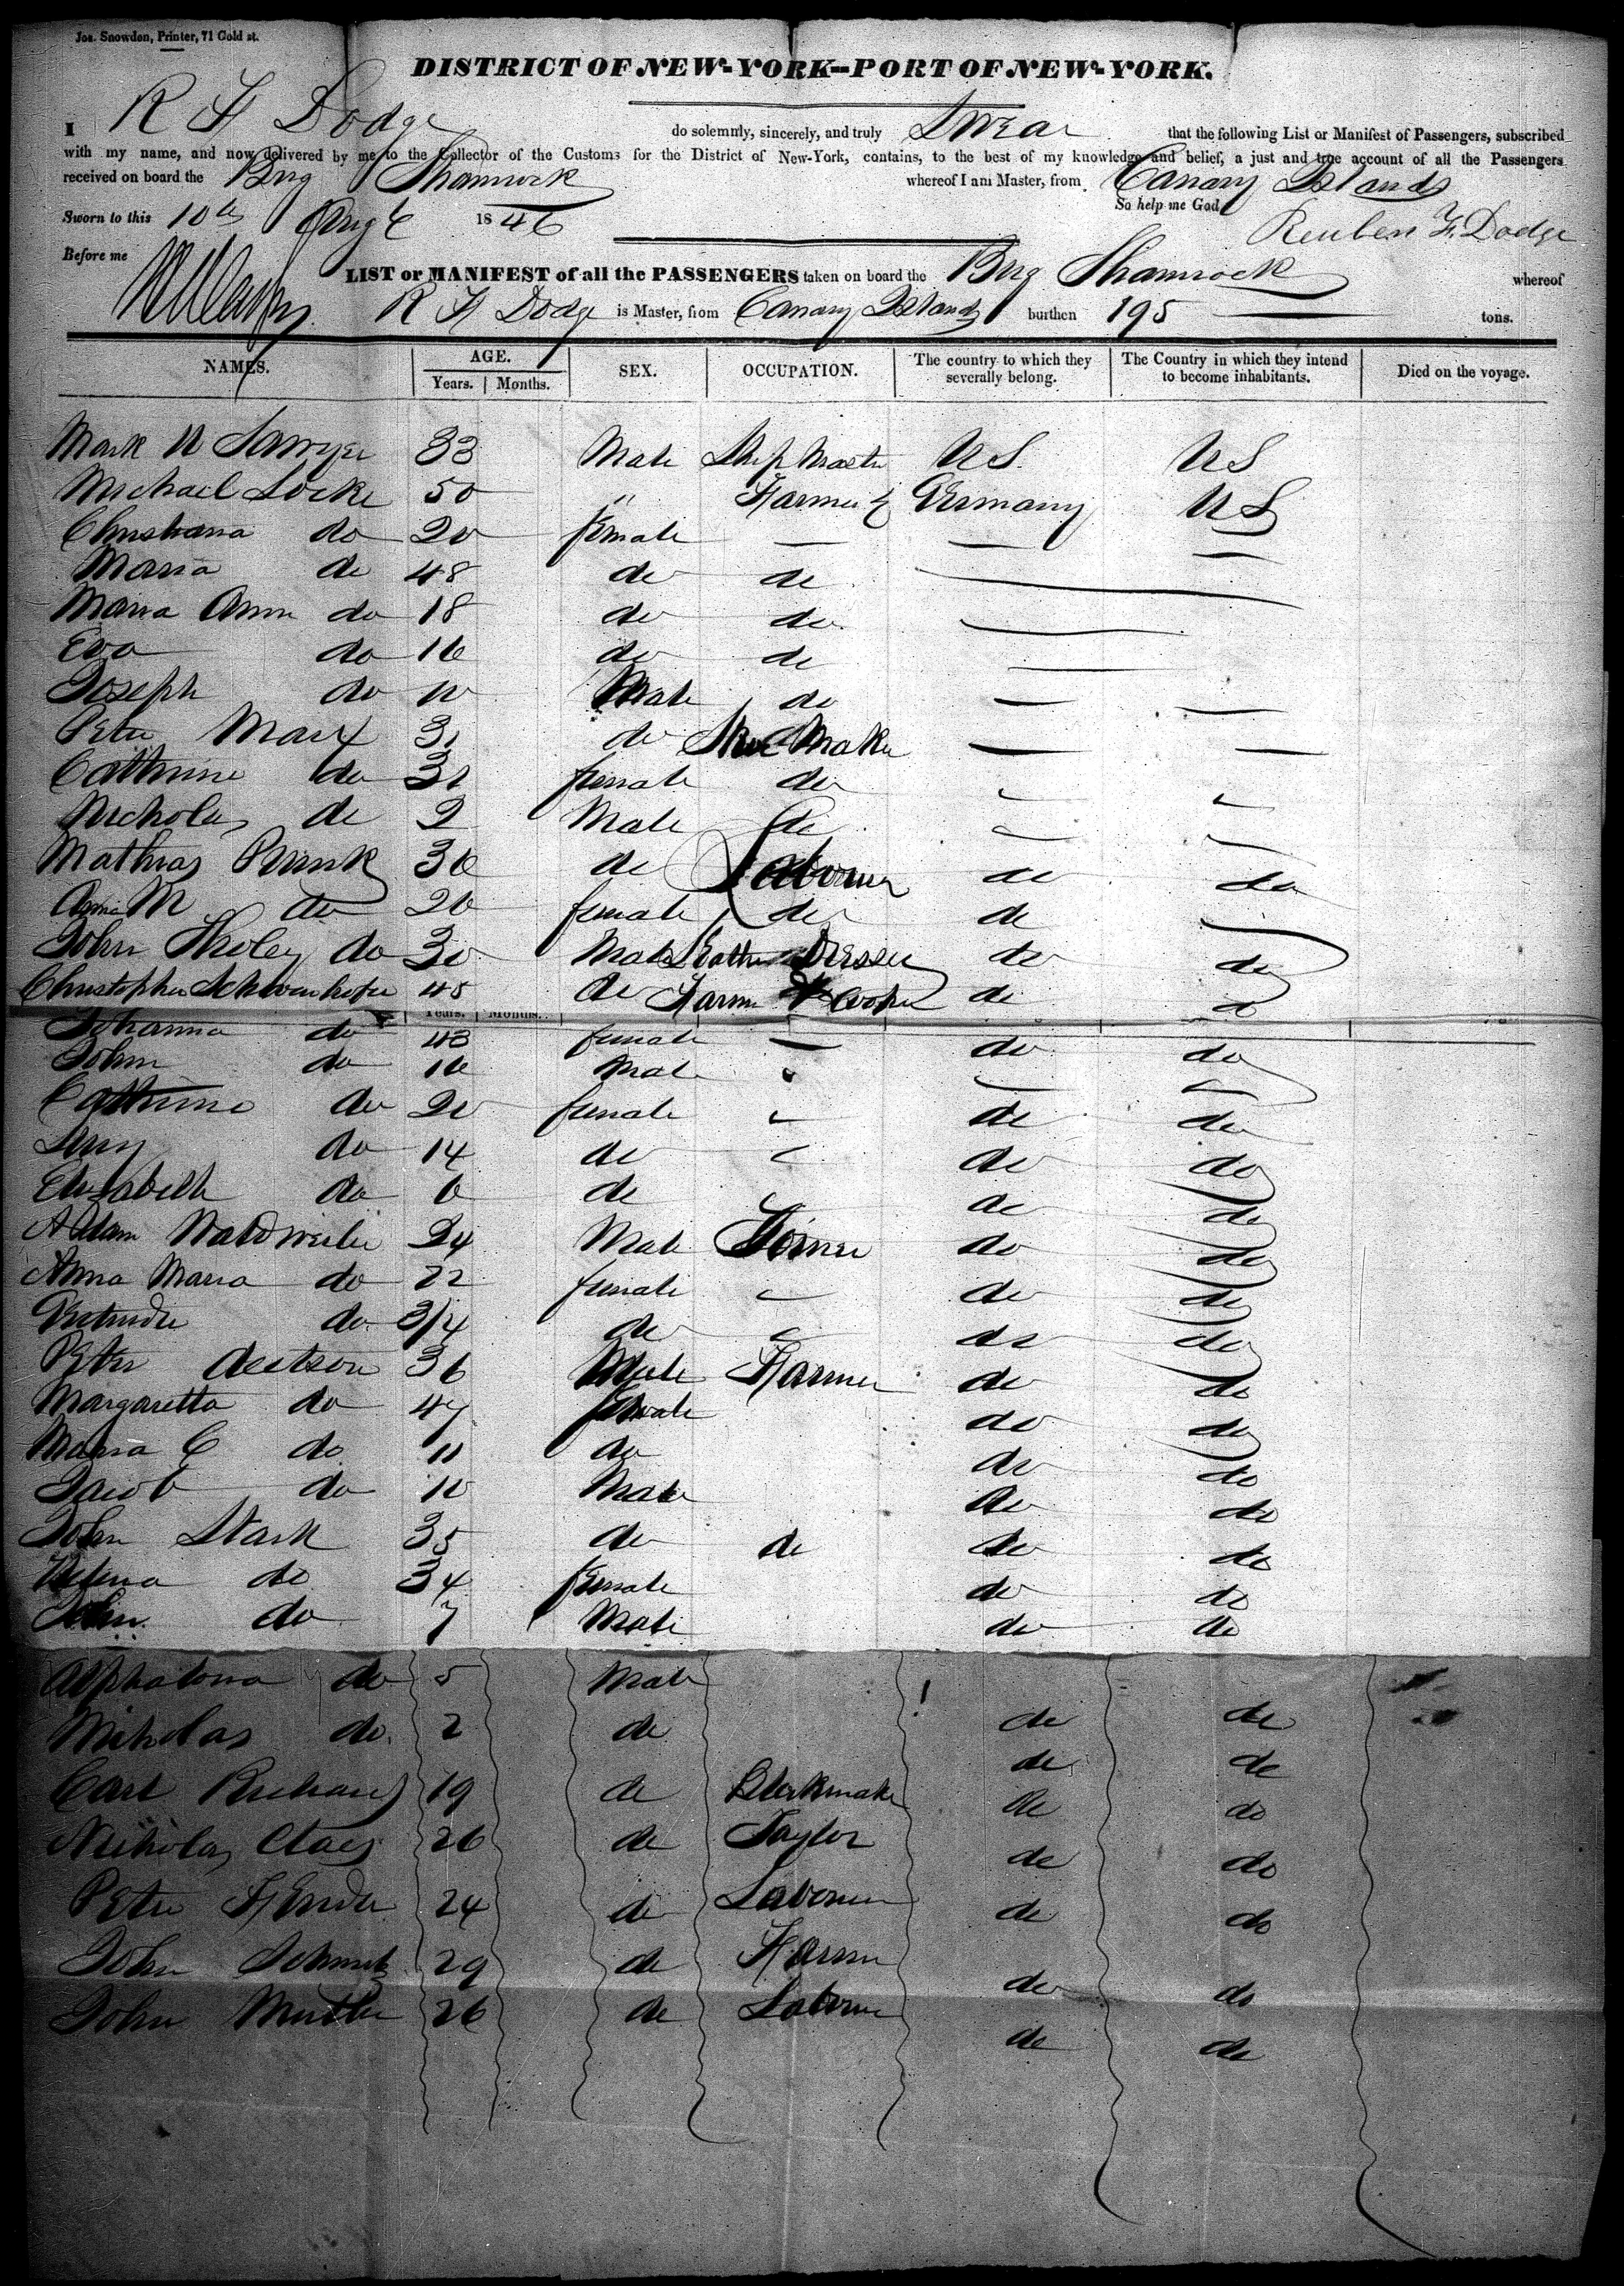 Jos. Snowden, Printer, 71 Gold st.
DISTRICT OF NEW-YORK--PORT OF NEW-YORK.
I R F Dodge do solemnly, sincerely, and truly Swear that the following List or Manifest of Passengers, subscribed
with my name, and now delivered by me to the Collector of the Customs for the District of New-York, contains, to the best of my knowledge and belief, a just and true account of all the Passengers
received on board the Brig Shamrock whereof I am Master, from Canary Islands
So help me God
Sworn to this 10th Augt 1846
Reuben F. Dodge
Before me
LIST or MANIFEST of all the PASSENGERS taken on board the Brig Shamrock whereof
R F Dodge is Master, from Canary Islands burthen 195 tons.
NAMES. AGE. Years. Months. SEX. OCCUPATION. The country to which they severally belong. The Country in which they intend to become inhabitants. Died on the voyage.
Mark W Sawyer 33 Male Ship Master US US
Michael Locke 50 " Farmer Germany US
Christiana do 20 female
Maria do 48 do do
Maria Ann do 18 do do
Eva do 16 do do
Joseph do 10 Male do
Peter Marx 31 do Shoe Maker
Cathrine do 31 female do
Nicholas do 2 Male do
Mathias Prink 36 do Labourer do do
Anna M do 26 female do do
John Tholey do 30 Male Leather Dresser do do
Christopher 45 do Farmer & Cooper do do
Years. Months.
Johanna do 43 female do do
John do 16 Male
Cathrine do 20 female do do
do 14 do do do
Elizabeth do 6 do do do
Adam 24 Male Joiner do do
Anna Maria do 22 female do do
Gertrude do 3/4 do do do
Peter 36 Male Farmer do do
Margaretta do 47 female do do
Maria C do 11 do do do
Jacob do 10 Male do do
John Stark 35 do do do do
Helena do 34 female do do
John do 7 Male do do
do 5 Male
Nikolas do 2 do do do
Carl 19 do do do
Nikolas Claes 26 do Taylor do do
Peter 24 do Labourer do do
John Schmitz 29 do Farmer do do
John Muller 26 do Labourer do do